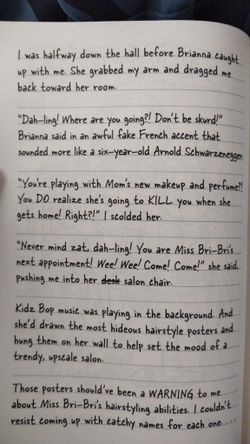 I was halfway down the hall before Brianna caught
up with me. She grabbed my arm and dragged me
back toward her room.
"Dah-ling! Where are you going?! Don't be skurd!"
Brianna said in an awful fake French accent that
sounded more like a six-year-old Arnold Schwarzenegger.
"You're playing with Mom's new makeup and perfume?!
You DO realize she's going to KILL you when she
gets home! Right?!" I scolded her.
"Never mind zat, dah-ling! You are Miss Bri-Bri's
next appointment! Wee! Wee! Come! Come!" she said,
pushing me into her desk salon chair.
Kidz Bop music was playing in the background. And
she'd drawn the most hideous hairstyle posters and
hung them on her wall to help set the mood of a
trendy, upscale salon.
Those posters should've been a WARNING to me
about Miss Bri-Bri's hairstyling abilities. I couldn't
resist coming up with catchy names for each one . . . .